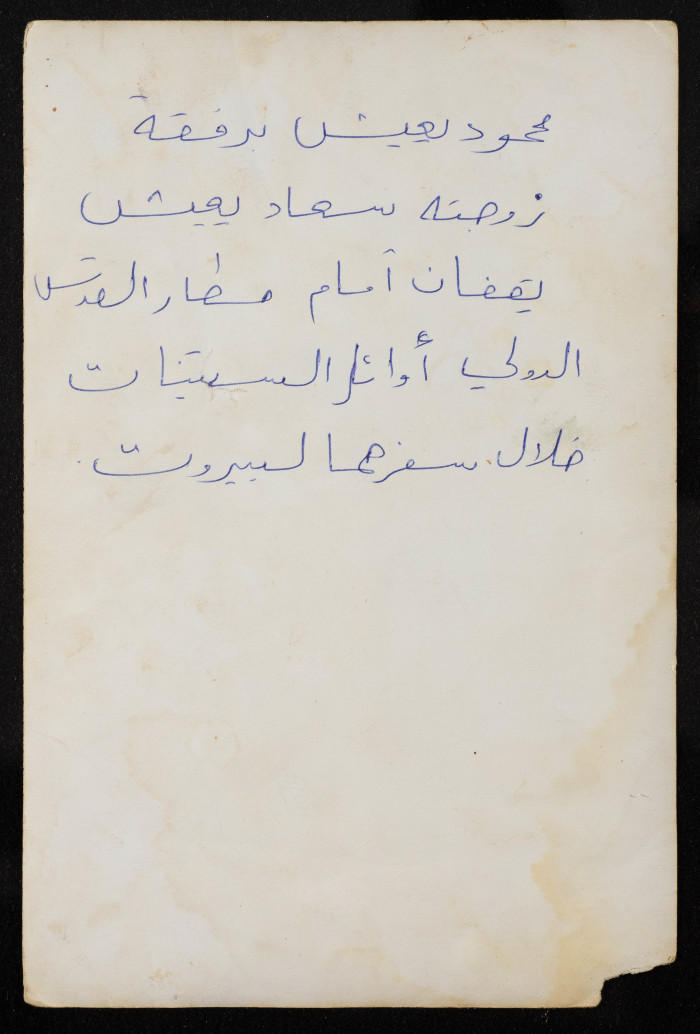 محمود يعيش برفقة
زوجته سعاد يعيش
يقفان أمام مطار القدس
الدولي أوائل الستينات
خلال سفرهما لبيروت.